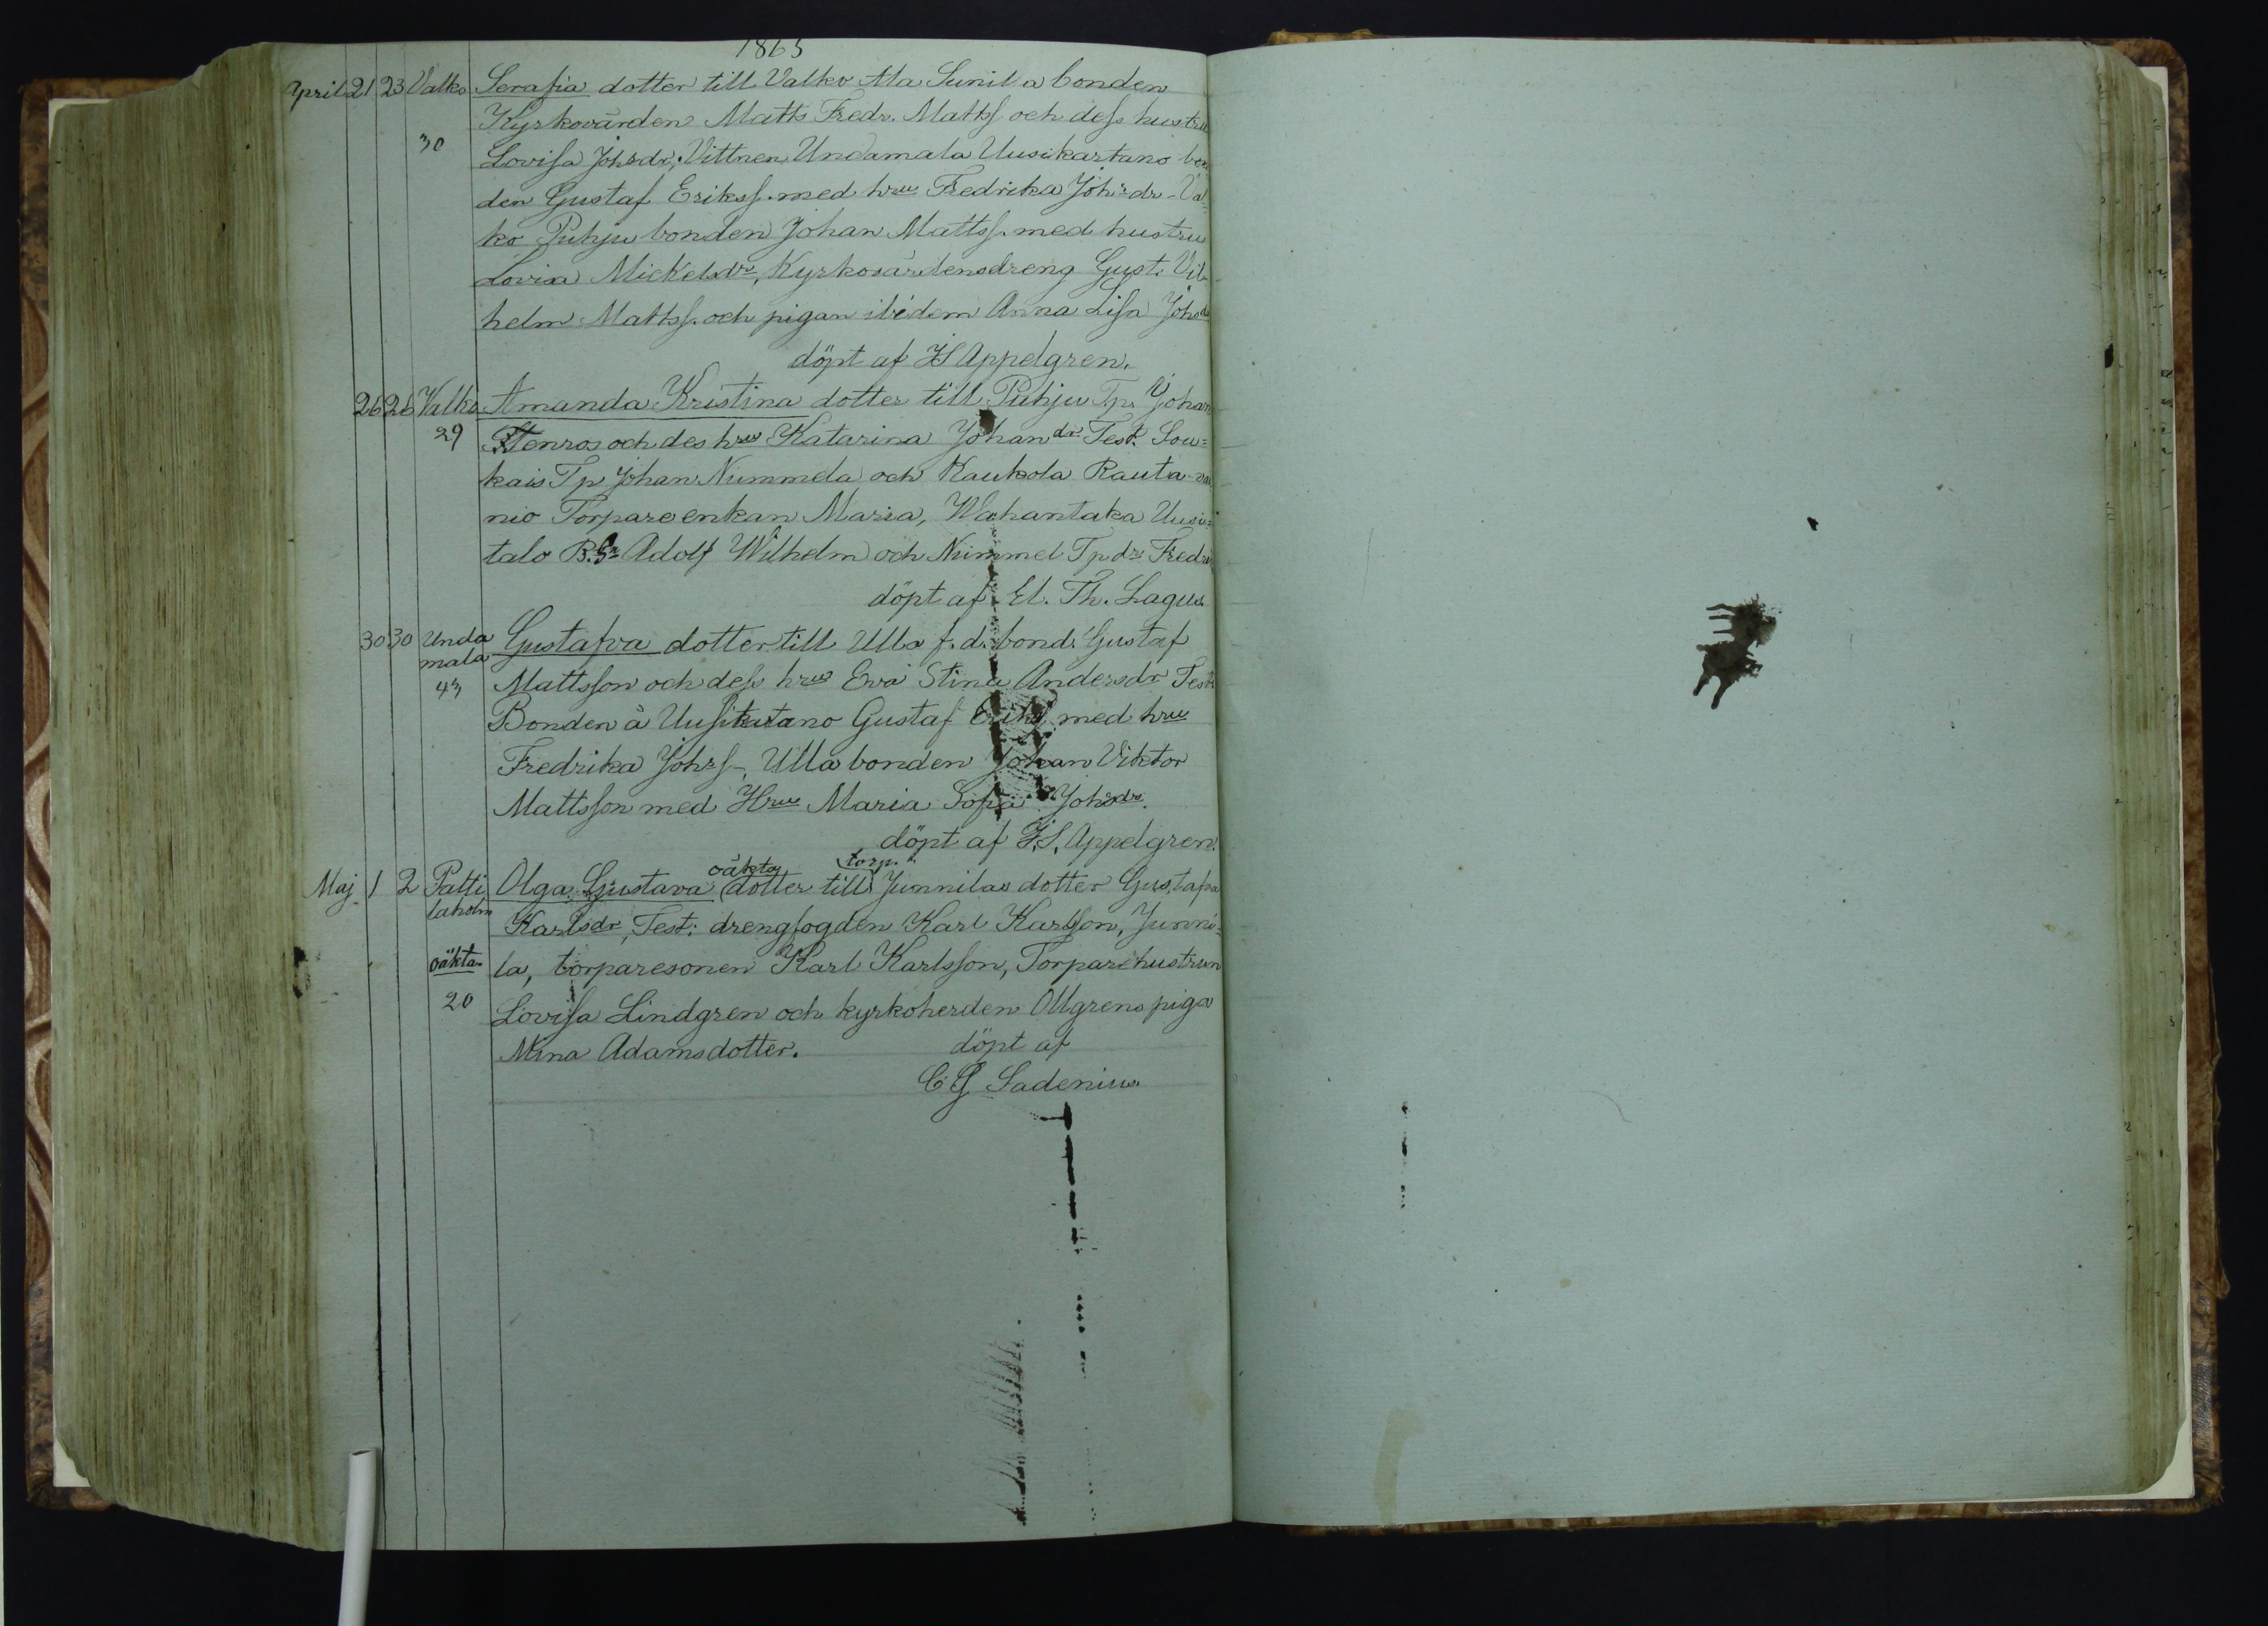 1865
April 21 23 Valko Serafia dotter till Valko Ala Sunila bonden
Kyrkovärden Matts Fredr. Mattsſ och deſs hustru
30 Loviſa Johsdr, Vittnen Undamala Uusikartano bon
den Gustaf Eriksſ. med hru Fredrika Johsdr - Val
ko Puhju bonden Johan Mattsſ. med hustru
Lovisa Mickelsdr, Kyrkovärdens dreng Gust. Vil
helm Mattsſ. och pigan ibidem Anna Liſa Johsd
döpt af FS Appelgren.
26 26 Valko Amanda Kristina dotter till Puhju Tp. Johan
29 Stenros och des hru Katarina Johan dr Test. Lou=
kais Tp Johan Nummela och Kaukola Rauta-
nio Torpare enkan Maria, Wahantaka Uusi=
talo B. Sn Adolf Wilhelm och Nummel Tp dr Fredri
döpt af El. Th. Lagus
30 30 Unda Gustafva dotter till Ulla f. d. bond. Gustaf
mala
43 Mattsſon och deſs hru Eva Stina Andersdr Test
Bonden å Uuſikartano Gustaf Eriksſ med hru
Fredrika Johsſ-, Ulla bonden Johan Viktor
Mattsſon med Hru Maria Sofia Johsdr.
döpt af F.S. Appelgren.
oäkta torp.
Maj 1 2 Patti Olga Gustava dotter till Junnilas dotter Gustafva
laholm
Karlsdr, Test: drengfogden Karl Karlſson, Junni-
oäkta la, torparesonen Karl Karlsſon, Torparehustrun
20 Loviſa Lindgren och kyrkoherden Ollgrens piga
Mina Adamsdotter. döpt af
C G Sadenius